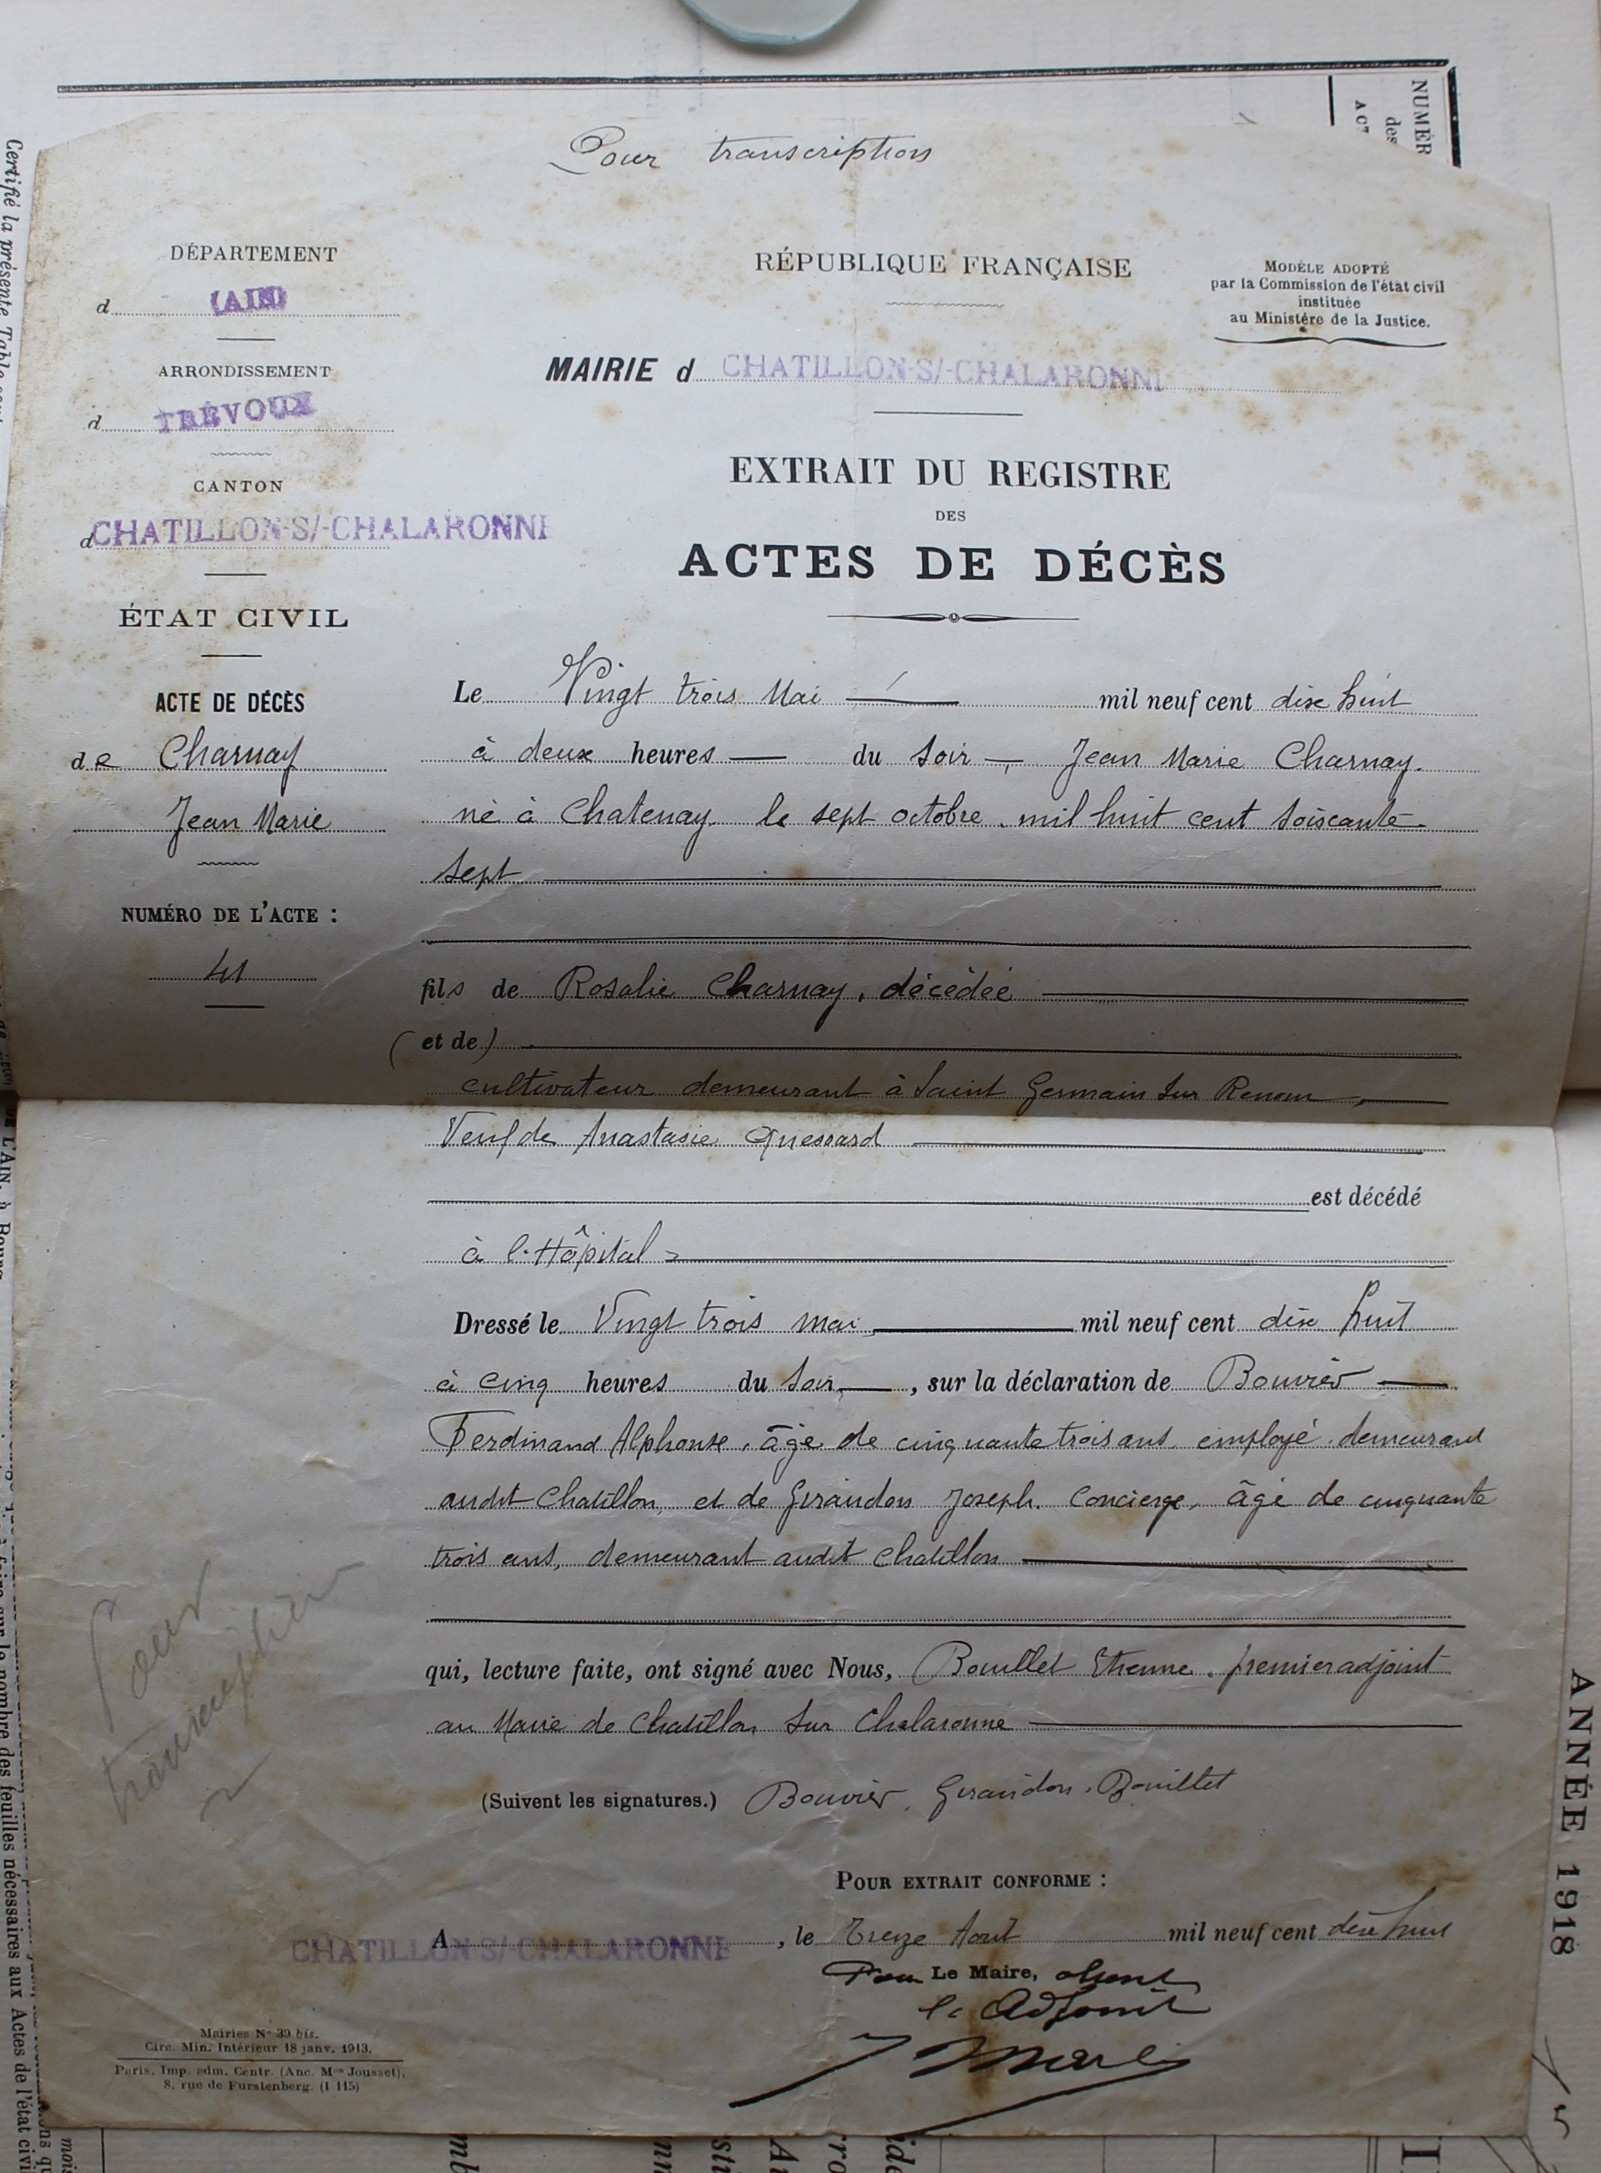 NUMÉR
des
AC
Certifié la présente Table
Pour transcription
DÉPARTEMENT
d (AIN)
ARRONDISSEMENT
d TRÉVOUX
CANTON
d CHATILLON-S/-CHALARONNE
ÉTAT CIVIL
ACTE DE DÉCÈS
de Charnay
Jean Marie
NUMÉRO DE L'ACTE :
41
RÉPUBLIQUE FRANÇAISE
MODÈLE ADOPTÉ
par la Commission de l'état civil
instituée
au Ministère de la Justice.
MAIRIE d CHATILLON-S/-CHALARONNE
EXTRAIT DU REGISTRE
DES
ACTES DE DÉCÈS
Le Vingt trois Mai mil neuf cent dix huit
à deux heures du soir, Jean Marie Charnay.
né à Chatenay le sept octobre mil huit cent soixante
sept
fils de Rosalie Charnay, décédée
(et de)
cultivateur demeurant à Saint Germain sur Renom,
Veuf de Anastasie Quessard
est décédé
à l'Hôpital
Dressé le Vingt trois mai mil neuf cent dix huit
à cinq heures du soir, sur la déclaration de Bouvier
Ferdinand Alphonse, âgé de cinquante trois ans employé demeurant
audit Chatillon, et de Geraudon Joseph. Concierge, âgé de cinquante
trois ans, demeurant audit Chatillon
qui, lecture faite, ont signé avec Nous, Bouillet Etienne, premier adjoint
au Maire de Chatillon sur Chalaronne
(Suivent les signatures.) Bouvier, Geraudon, Bouillet
Pour
transcription
POUR EXTRAIT CONFORME :
A CHATILLON-S/-CHALARONNE, le Treize Aout mil neuf cent dix huit
Pour Le Maire, absent
l'Adjoint
Mairies N° 39 bis.
Circ. Min. Intérieur 18 janv. 1913.
Paris, Imp. adm. Centr. (Anc. Mon Jousset),
8, rue de Furstenberg. (I 115)
ANNÉE 1918
le nombre des feuilles nécessaires aux Actes de l'état civil